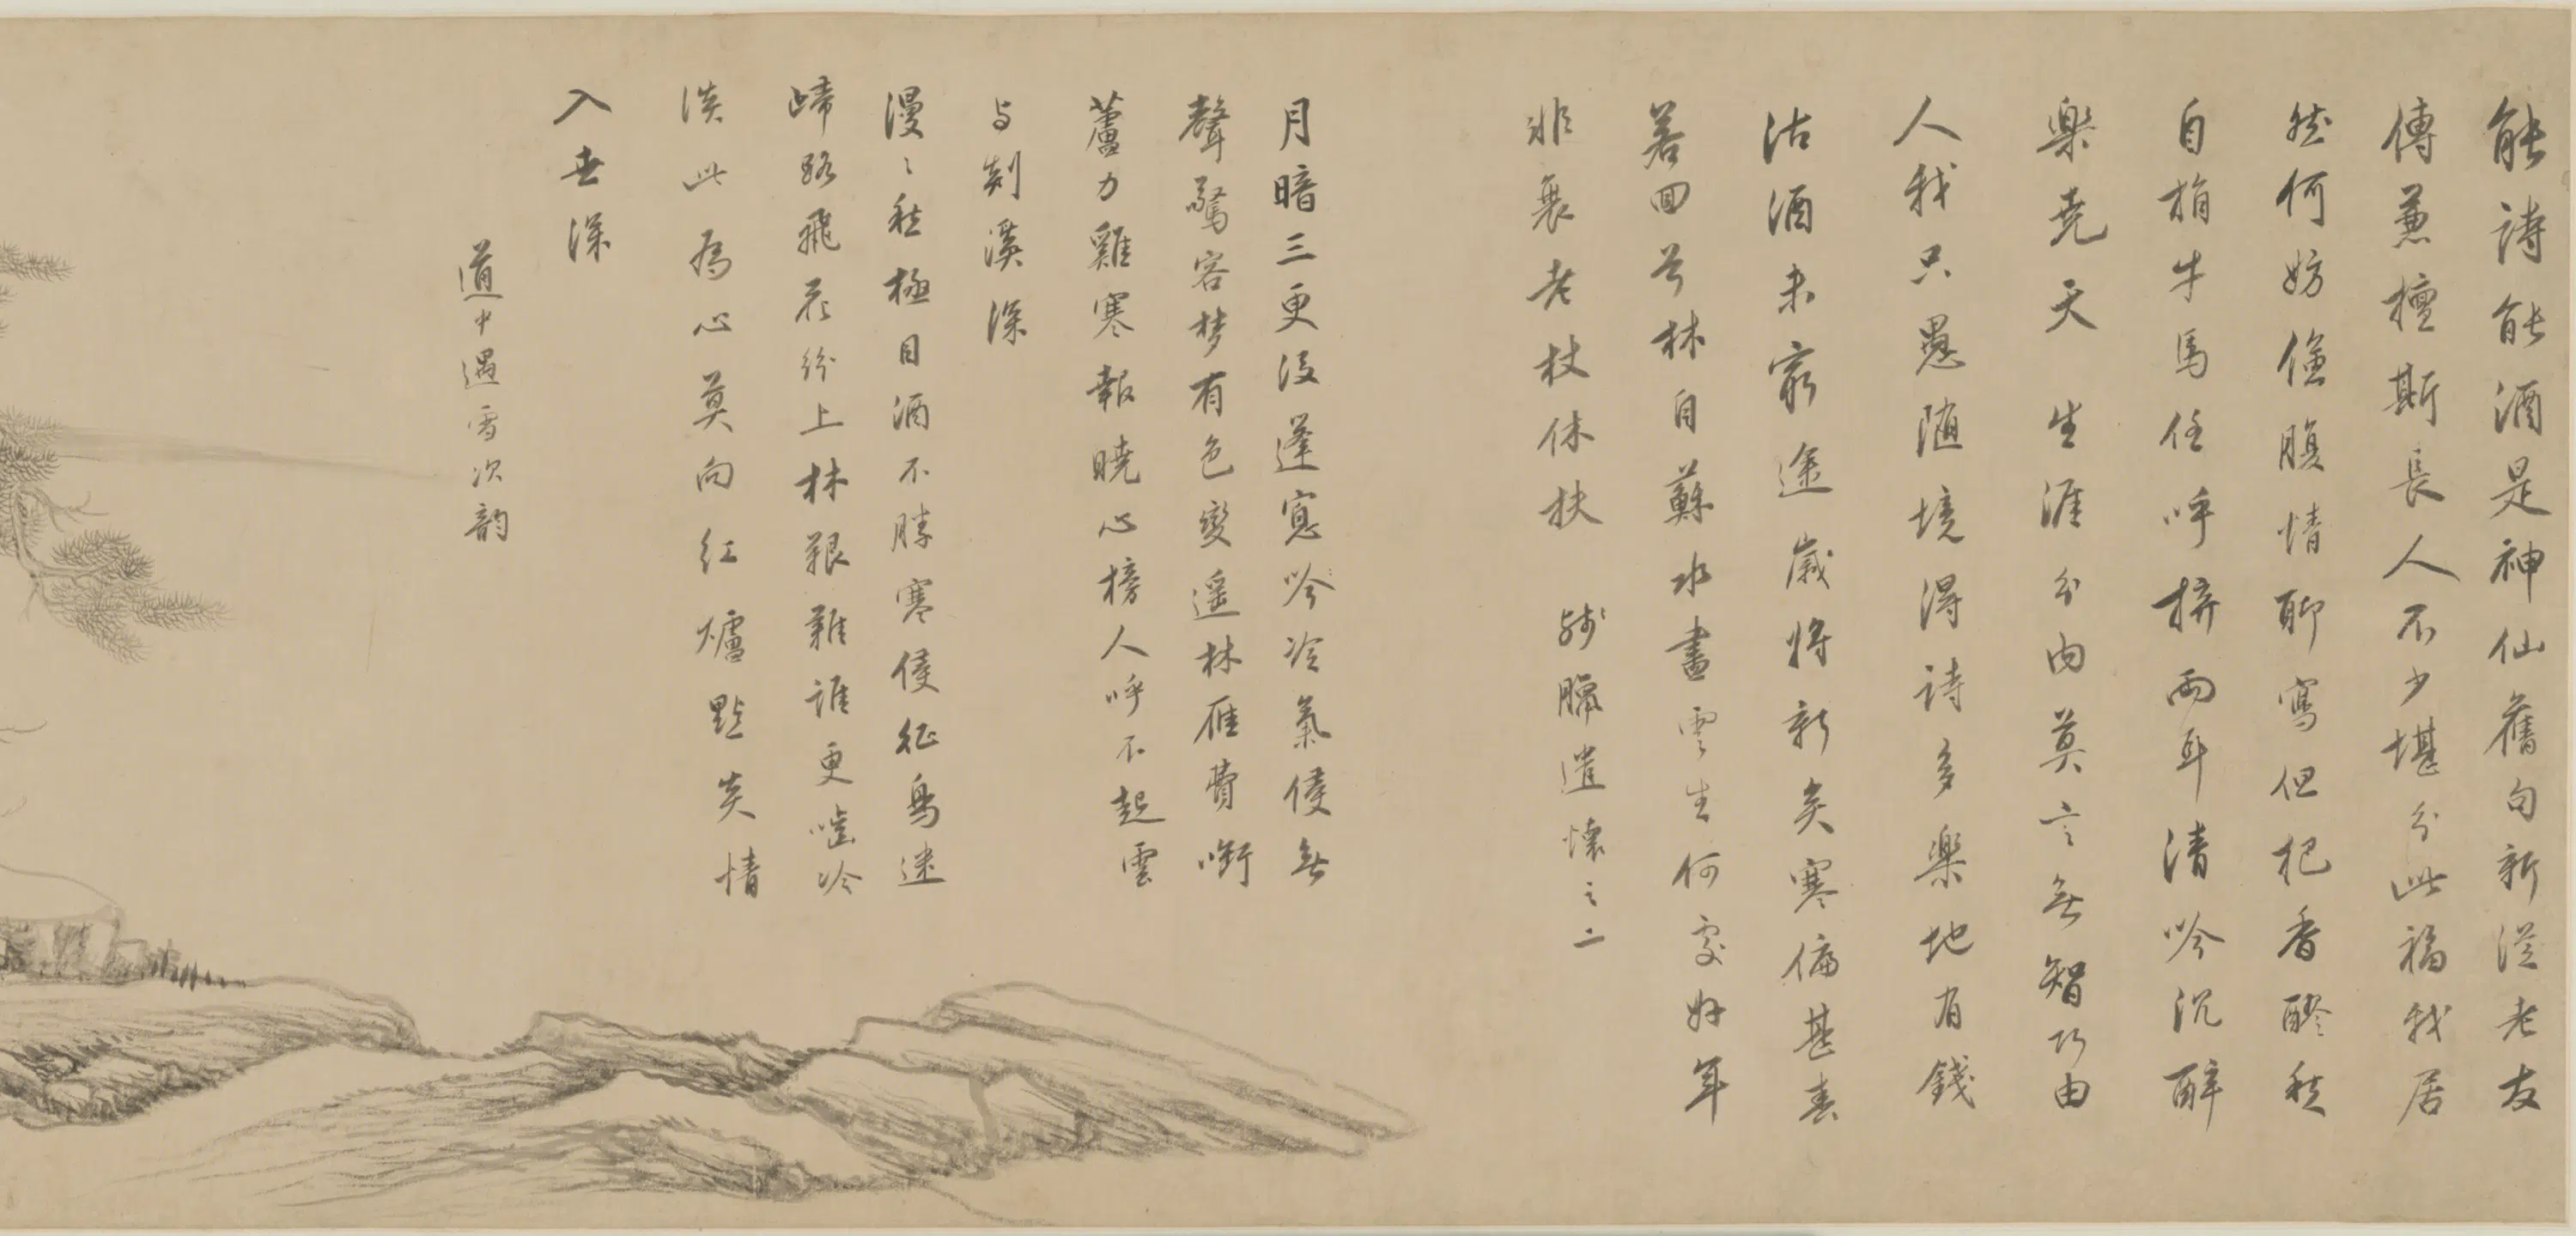 能詩能酒是神仙舊句新從老友
傳蒹檀斯長人不少堪分此福我居
然何妨儉腹情聊寫但把香醪愁
自捐牛馬任呼擠兩耳清吟沉醉
樂堯天 生涯分内莫言無智巧由
人我只愚隨境得詩多樂地有錢
沽酒未窮途歲將新矣寒偏甚春
若回兮林自蘇水盡雲生何處好年
非衰老杖休扶 殘臘遣懷之二
月暗三更後蓬窗吟冷氣侵無
聲驚客夢有色變遥林雁費啣
蘆力雞寒報曉心榜人呼不起雲
与剡溪深
漫々愁極目酒不勝寒侵征鳥迷
歸路飛花紛上林艱難誰更嚙冷
淡此為心莫向紅爐點炎情
入世深
道中遇雪次韵